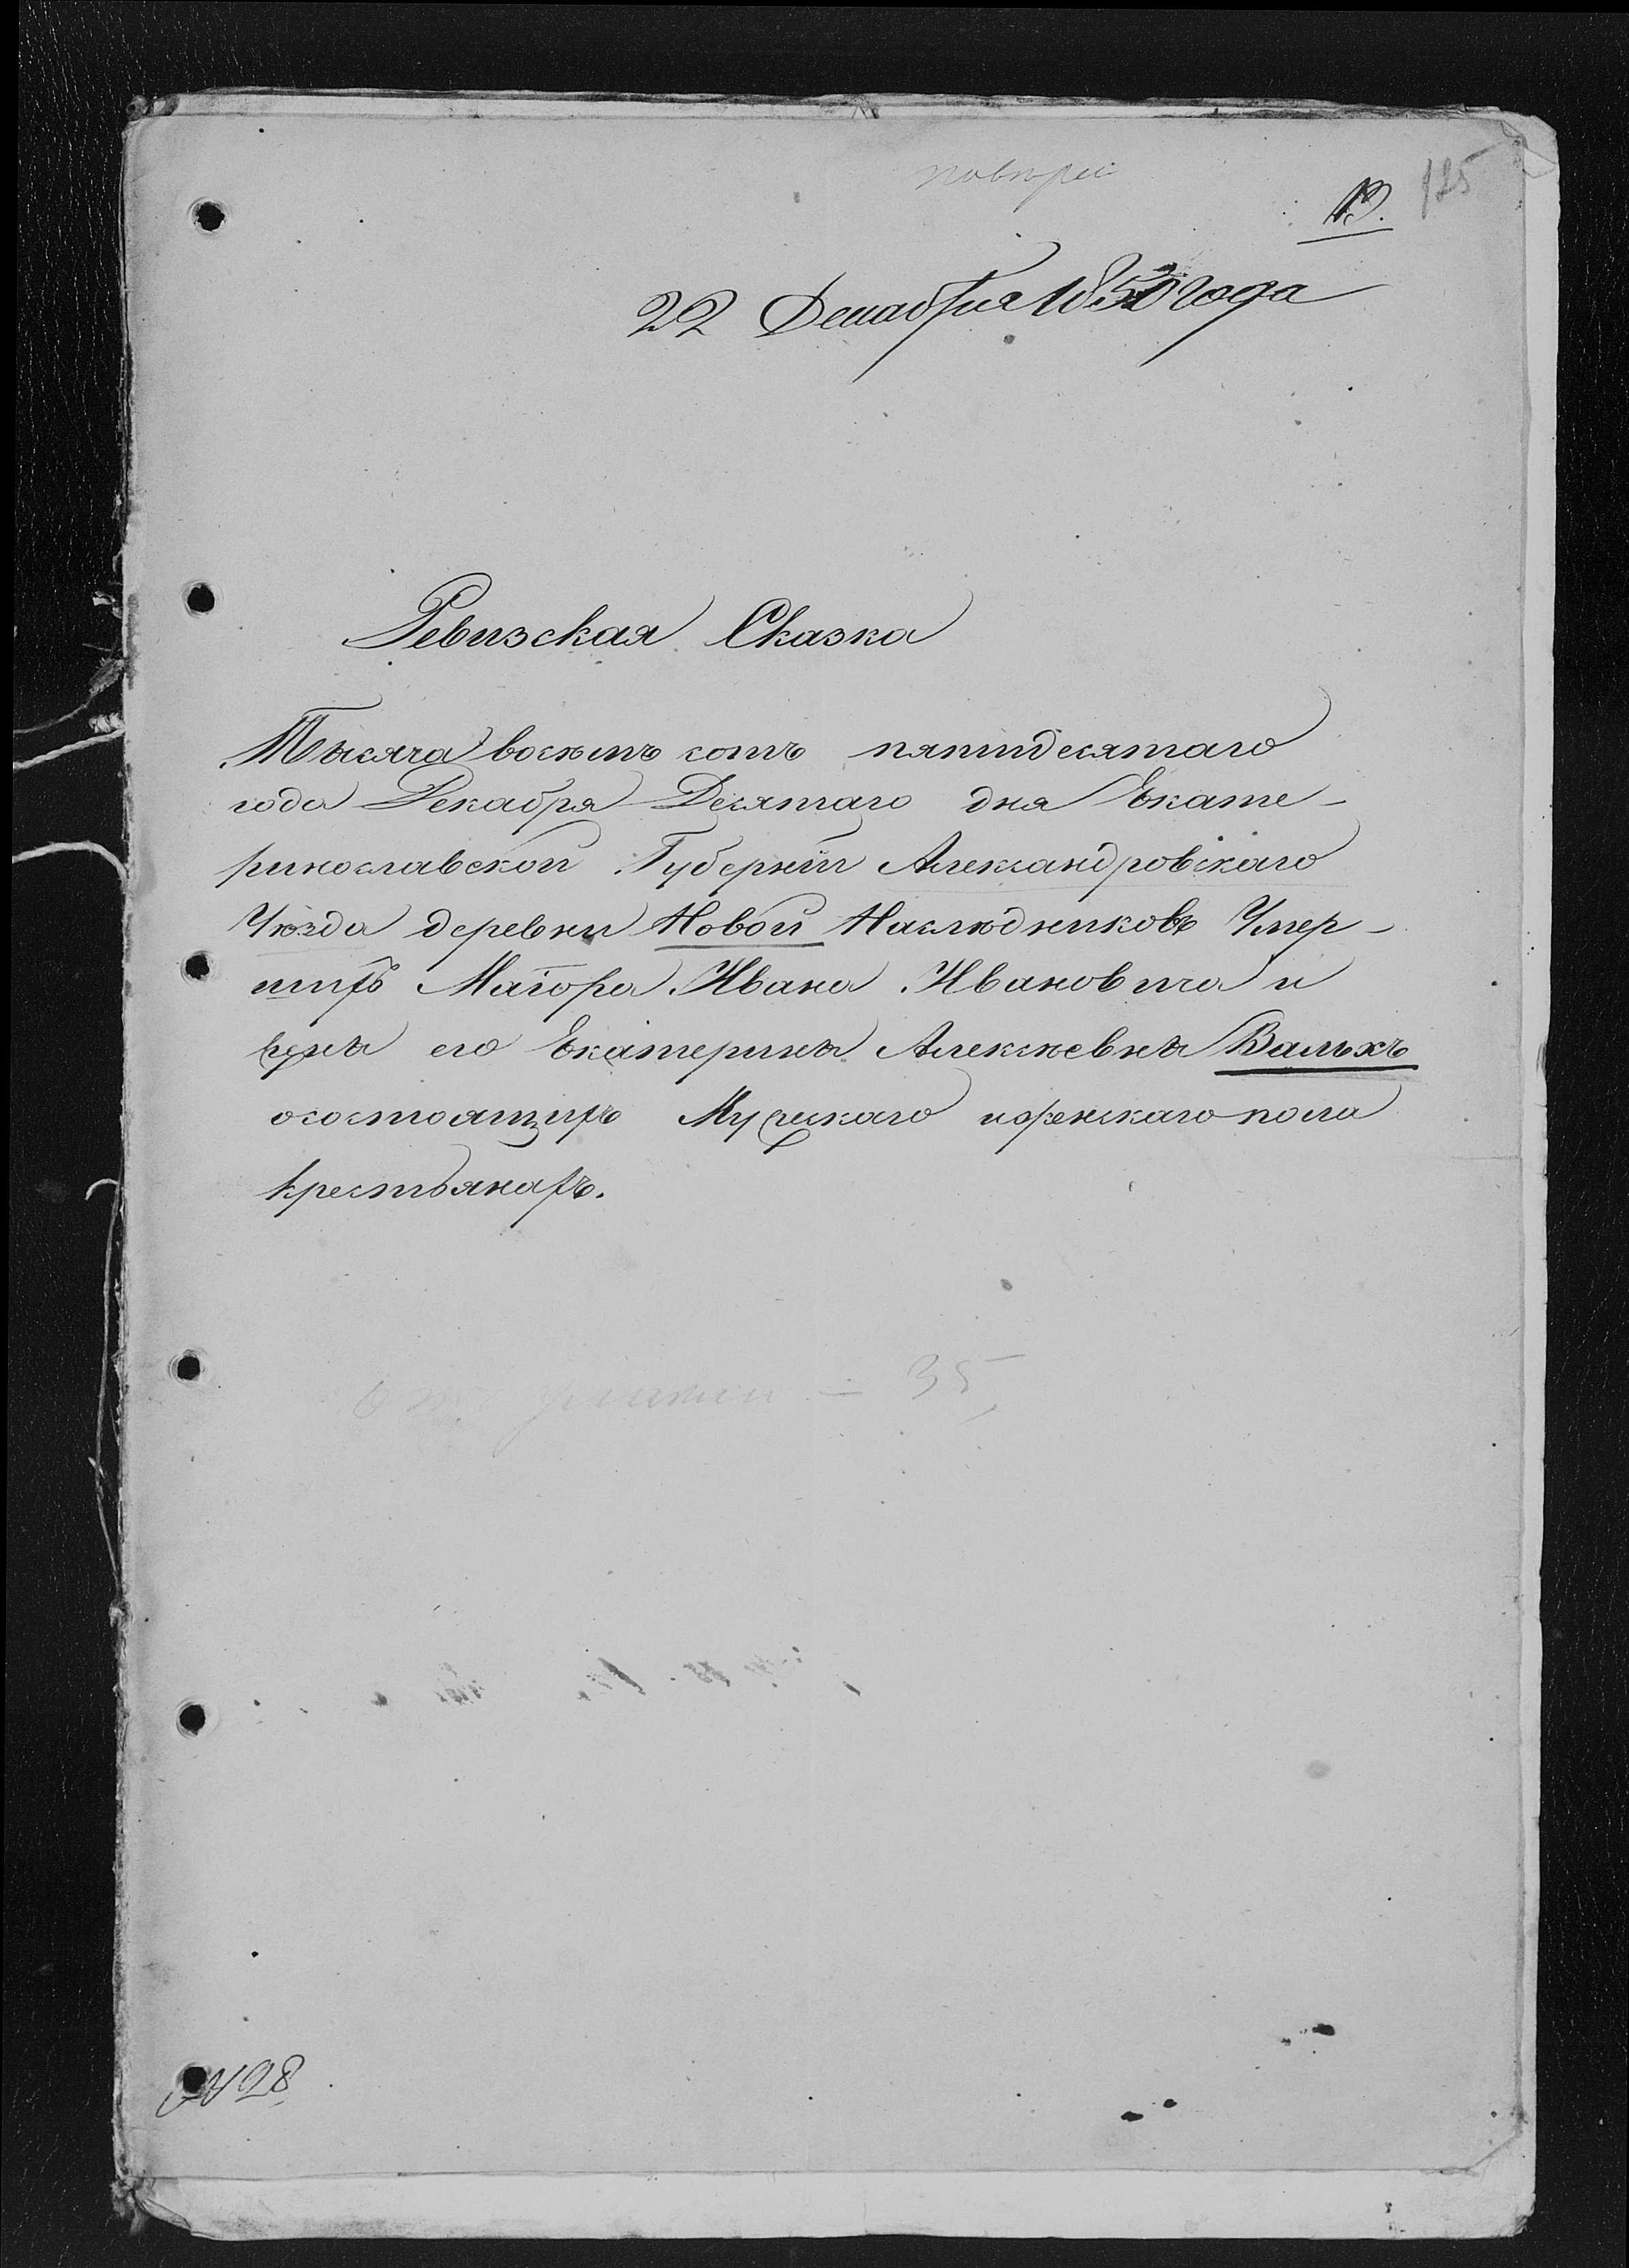 125
13.
22 Декабря 1850 года
Ревизская Сказка
Тысяча восемь сотъ пятидесятаго
года Декабря Десятаго дня Екате-
ринославской Губерніи Александровскаго
Уѣзда деревни Новой Наслѣдниковъ Умер-
шихъ Маіора Ивана Ивановича и
жены его Екатерины Алексѣевны Вальхъ
осостоящихъ Мужескаго иженскаго пола
крестьянахъ.
35
№ 28